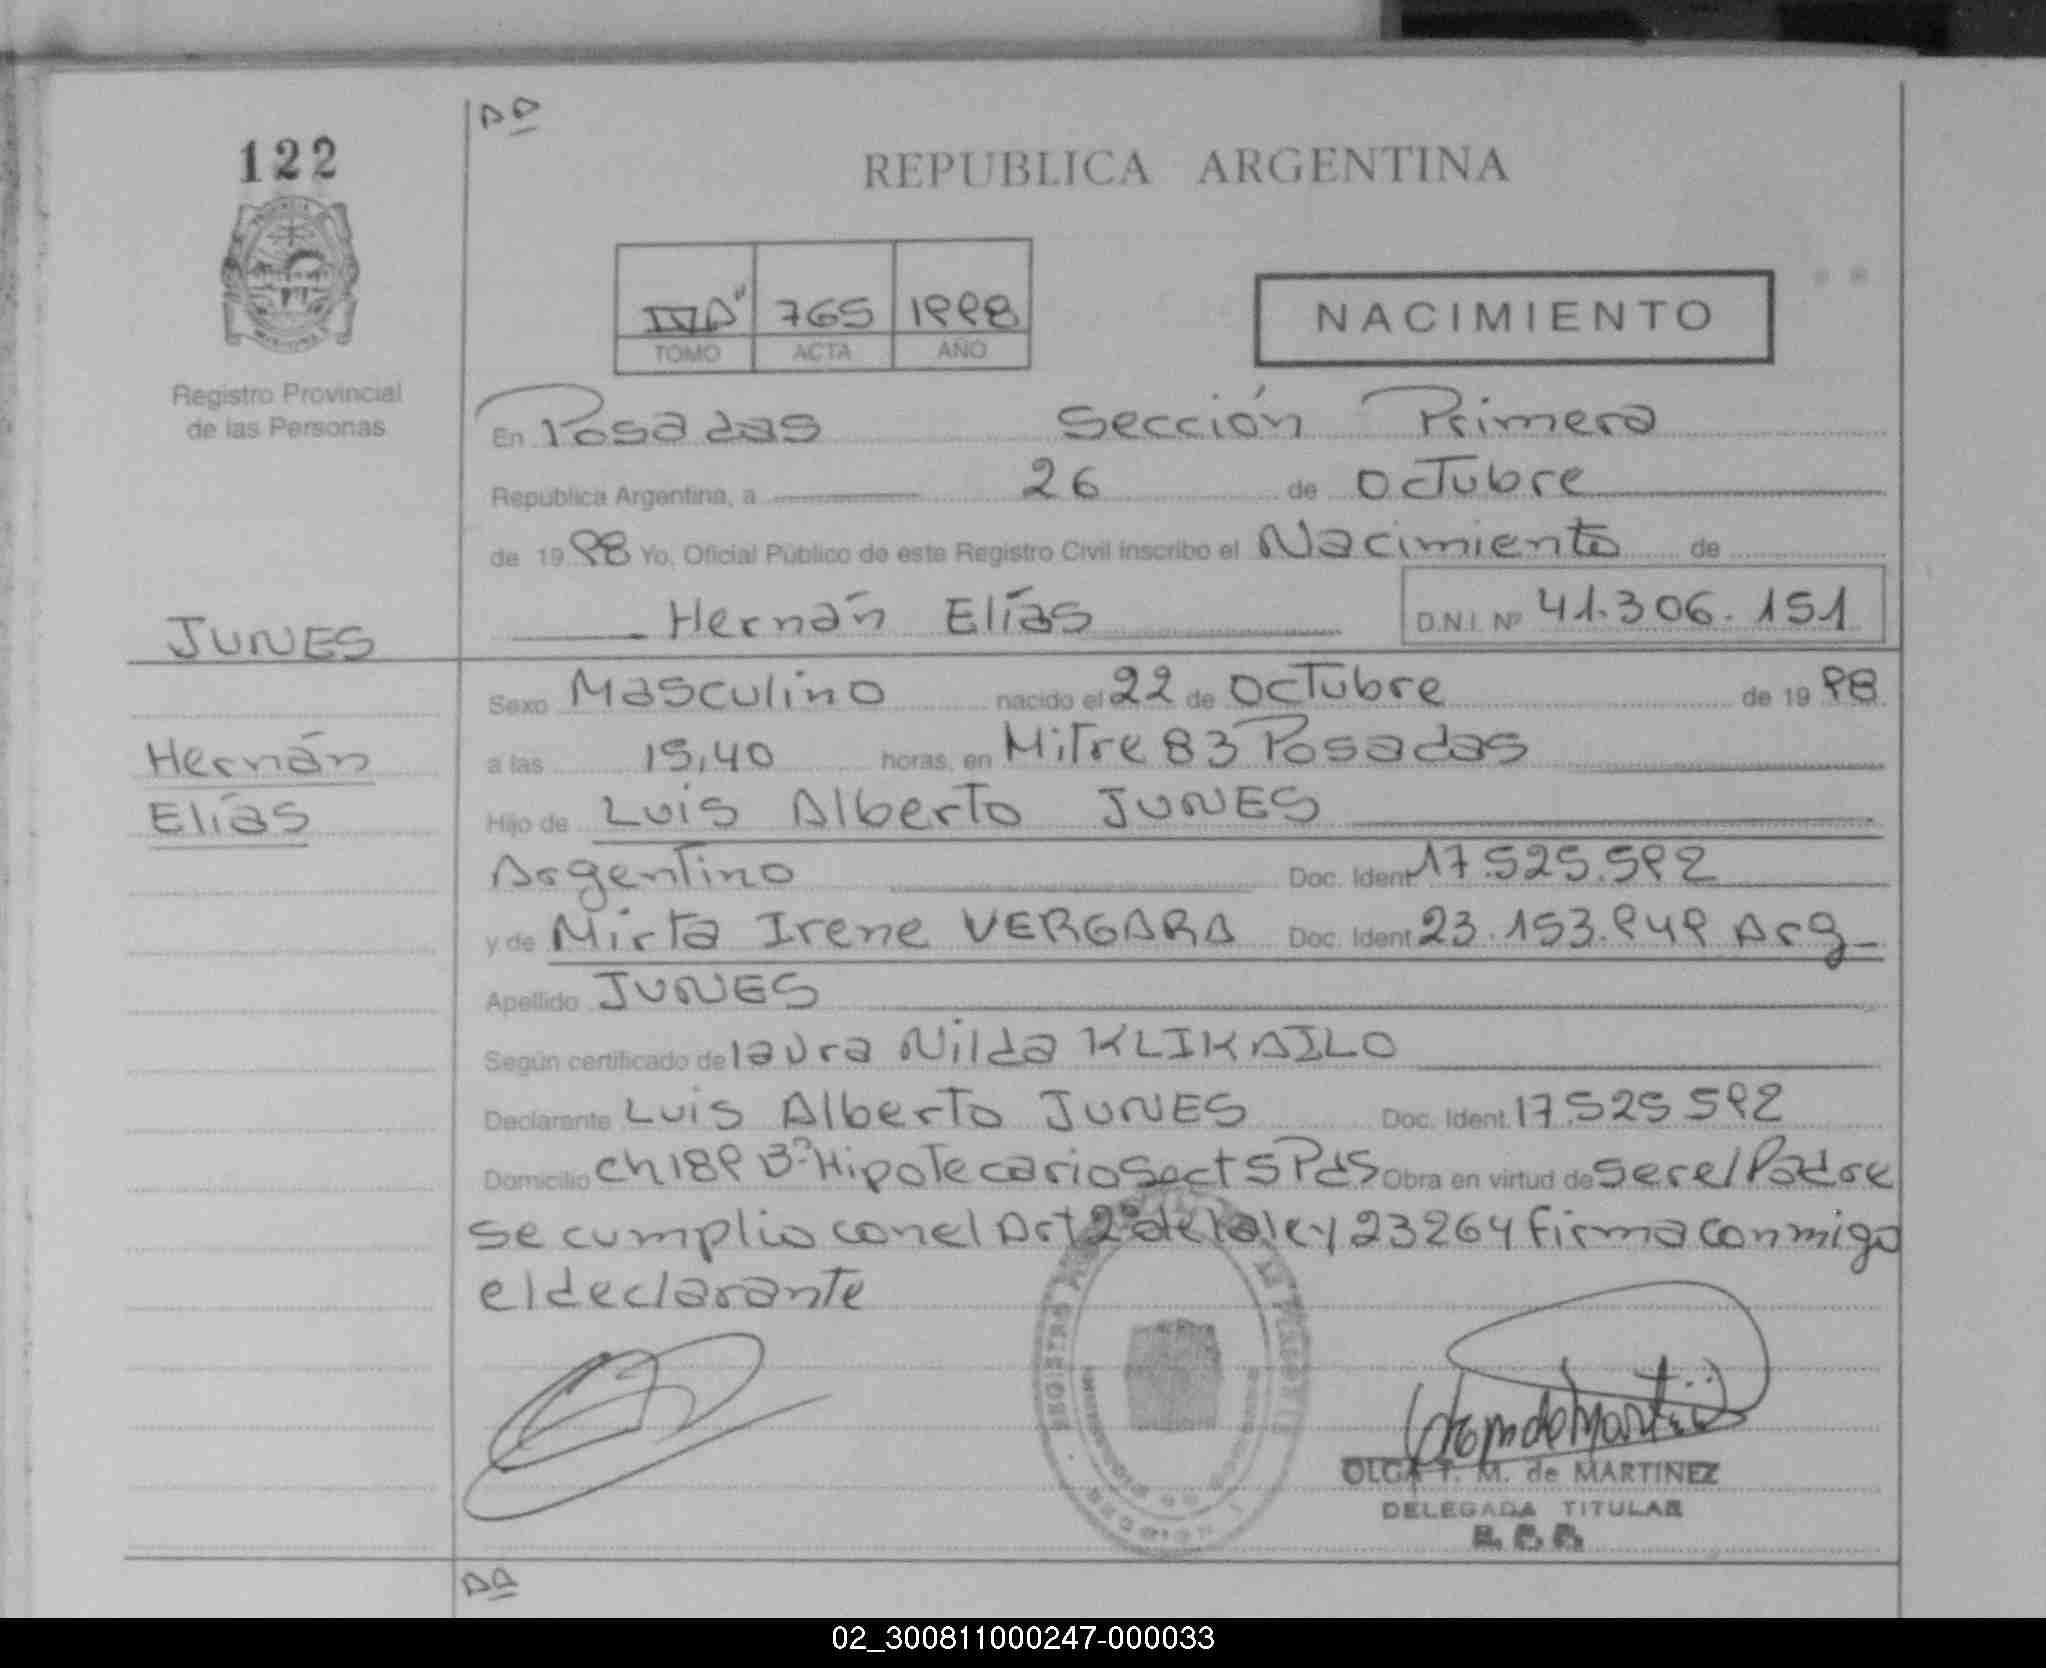 122
REPUBLICA ARGENTINA
765 1998
TOMO ACTA AÑO
NACIMIENTO
Registro Provincial
de las Personas
En Posadas Sección Primera
Republica Argentina, a 26 de Octubre
de 1998 Yo, Oficial Público de este Registro Civil inscribo el Nacimiento de
JUNES
Hernán Elías D.N.I. Nº 41.306.151
Sexo Masculino nacido el 22 de Octubre de 1998
Hernán
a las 15,40 horas, en Mitre 83 Posadas
Elías
Hijo de Luis Alberto JUNES
Argentino Doc. Ident 17.525.592
y de Mirta Irene VERGARA Doc. Ident 23.153.949 Arg
Apellido JUNES
Según certificado de laura Nilda KLIKAILO
Declarante Luis Alberto JUNES Doc. Ident. 17.525 592
Domicilio ch 189 Bº Hipotecario Sect 5 Pdas Obra en virtud de ser el Padre
se cumplio con el Art 2º de la ley 23264 firma conmigo
el declarante
OLGA T. M. de MARTINEZ
DELEGADA TITULAR
02_300811000247-000033